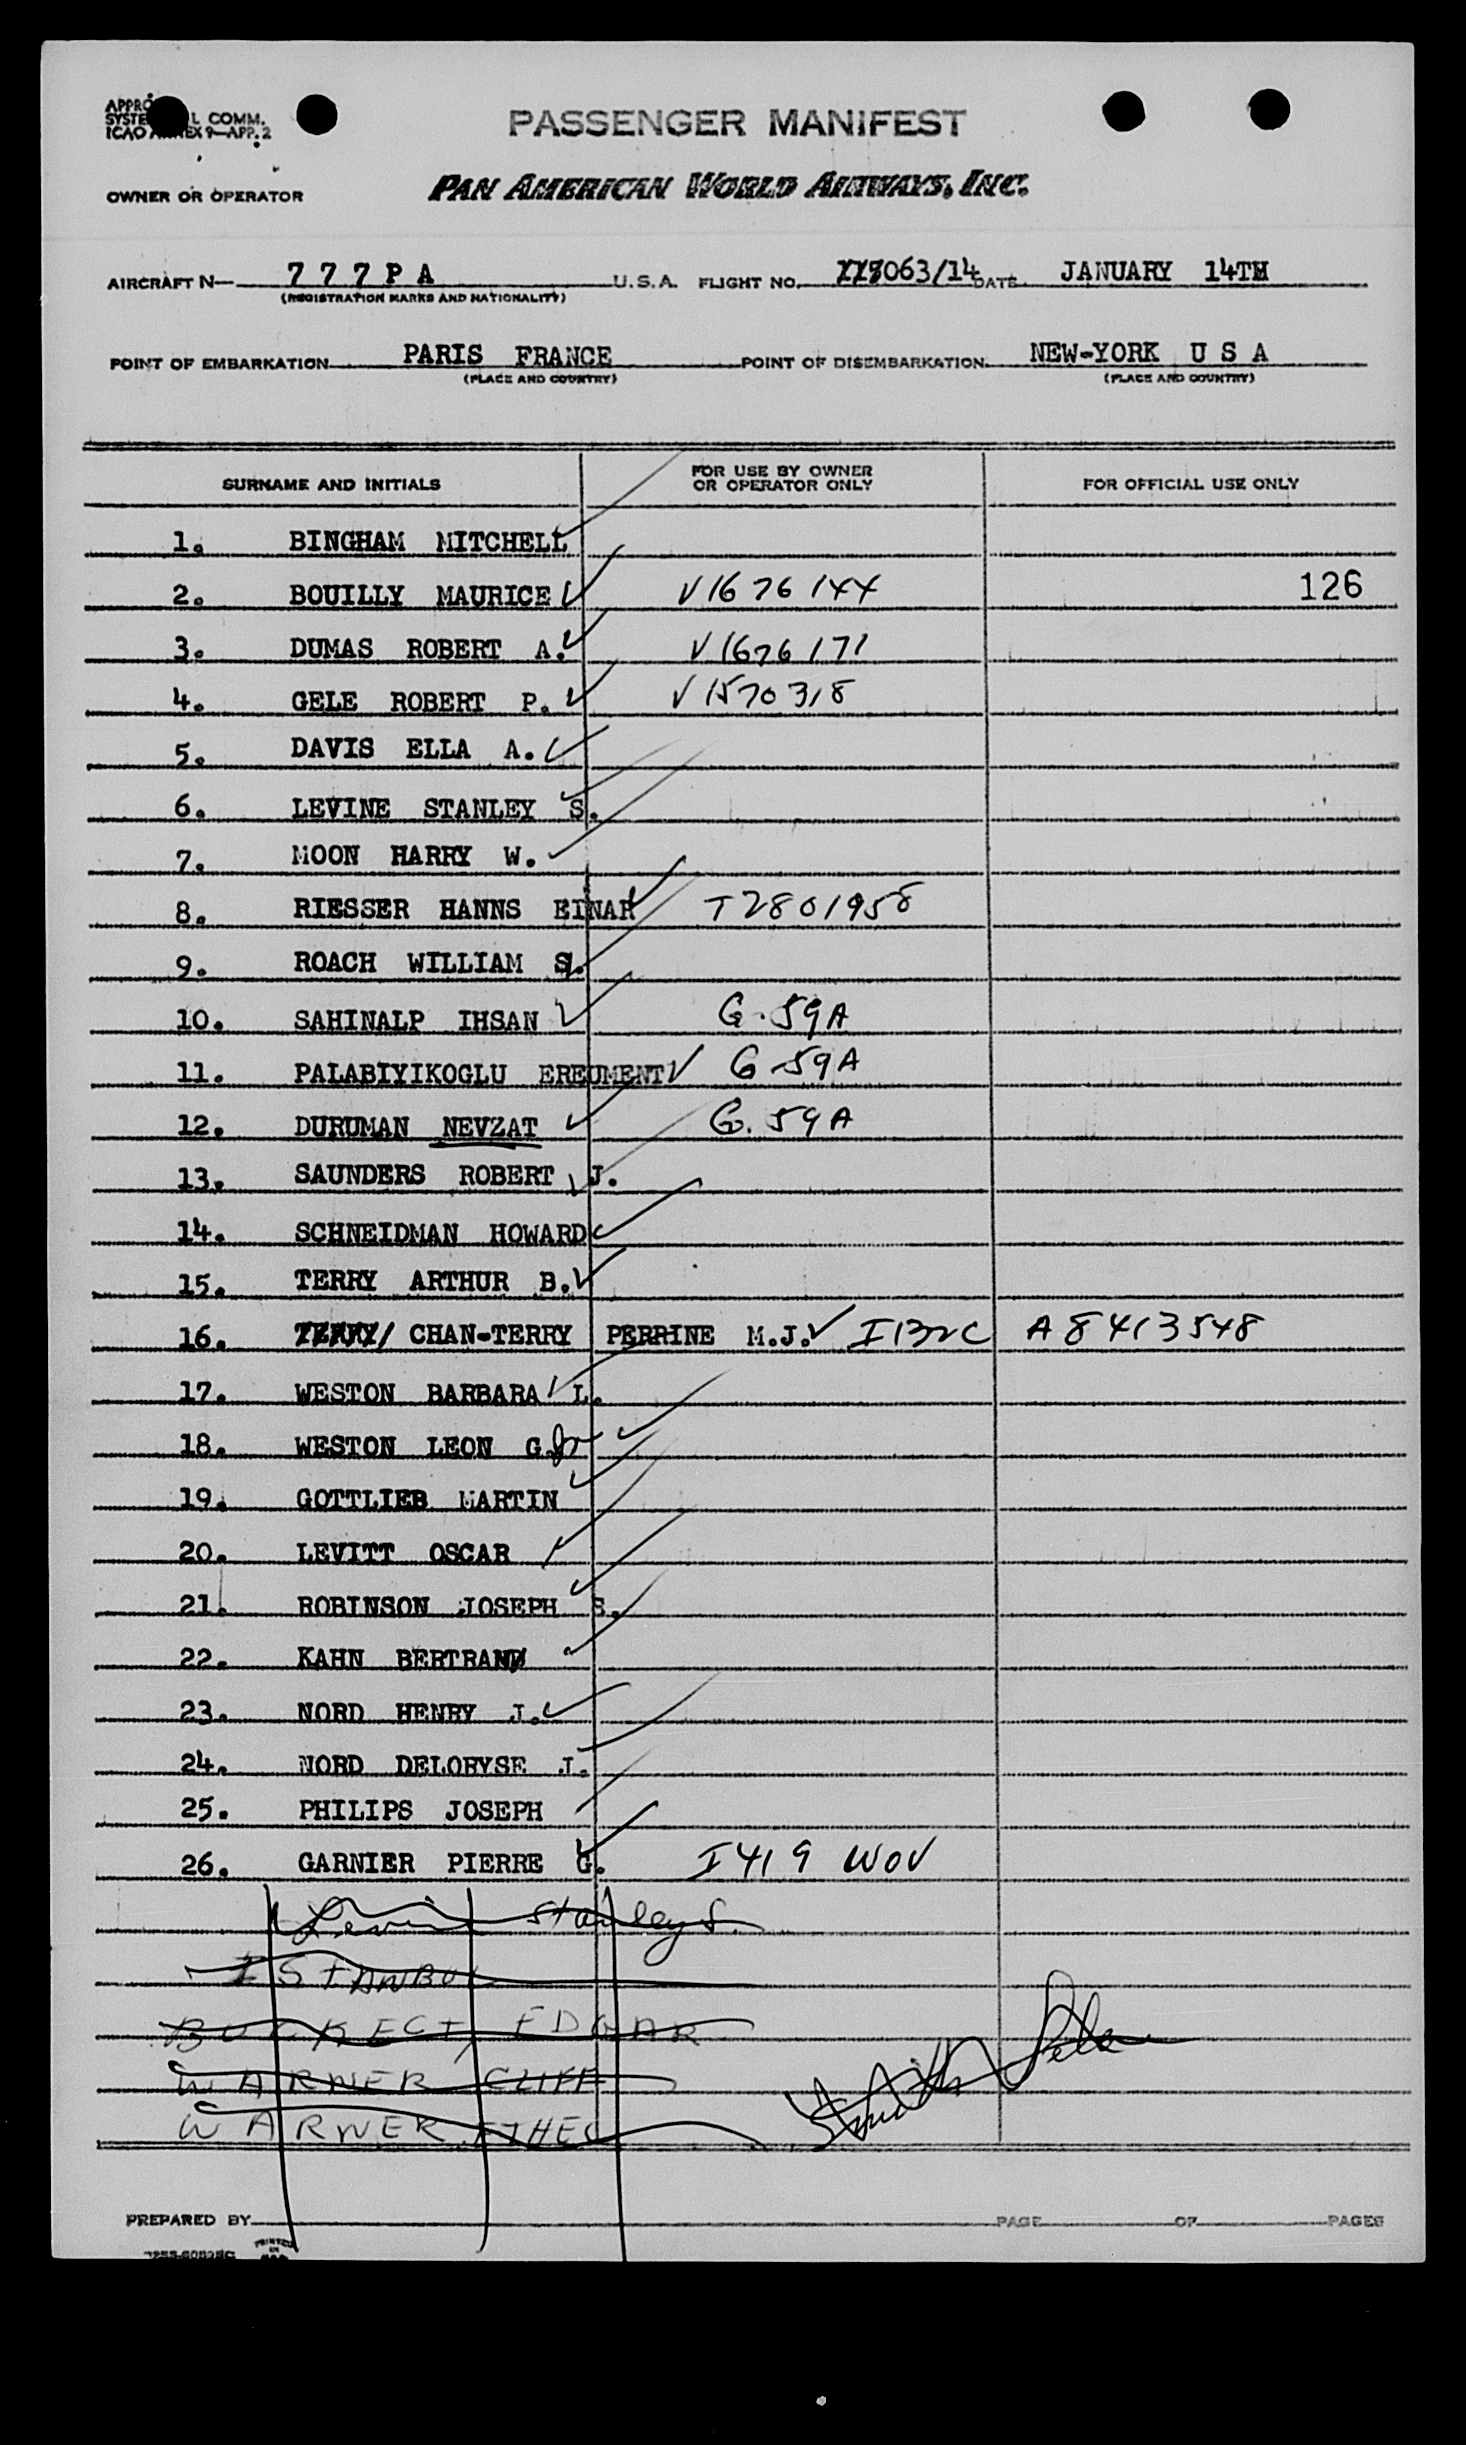 PASSENGER MANIFEST
L COMM.
ICAO ANNEX 9—APP. 2
OWNER OR OPERATOR PAN AMERICAN WORLD AIRWAYS, INC.
AIRCRAFT N— 7 7 7 P A U.S.A. FLIGHT NO. 063/14 DATE JANUARY 14TH
(REGISTRATION MARKS AND NATIONALITY)
POINT OF EMBARKATION PARIS FRANCE POINT OF DISEMBARKATION NEW-YORK U S A
(PLACE AND COUNTRY) (PLACE AND COUNTRY)
SURNAME AND INITIALS FOR USE BY OWNER OR OPERATOR ONLY FOR OFFICIAL USE ONLY
1. BINGHAM MITCHELL
2. BOUILLY MAURICE V1676144 126
3. DUMAS ROBERT A. V1676171
4. GELE ROBERT P. V1570318
5. DAVIS ELLA A.
6. LEVINE STANLEY S.
7. MOON HARRY W.
8. RIESSER HANNS EINAR T2801958
9. ROACH WILLIAM S.
10. SAHINALP IHSAN G.59A
11. PALABIYIKOGLU EREUMENT G 59A
12. DURUMAN NEVZAT G.59A
13. SAUNDERS ROBERT J.
14. SCHNEIDMAN HOWARD
15. TERRY ARTHUR B.
16. TERRY/ CHAN-TERRY PERRINE M.J. I132C A8413548
17. WESTON BARBARA L.
18. WESTON LEON G. Jr
19. GOTTLIEB MARTIN
20. LEVITT OSCAR
21. ROBINSON JOSEPH S.
22. KAHN BERTRAND
23. NORD HENRY J.
24. NORD DELORYSE J.
25. PHILIPS JOSEPH
26. GARNIER PIERRE G. I419 WOV
Levine Stanley S.
ISTANBUL
EDGAR
WARNER CLIFF
WARNER ETHEL
PREPARED BY PAGE OF PAGES
PRINTED IN